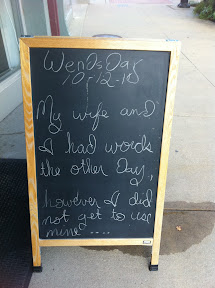 WenDsDay
10-12-10
My wife and
I had words
the other Day,
however I did
not get to use
mine ....